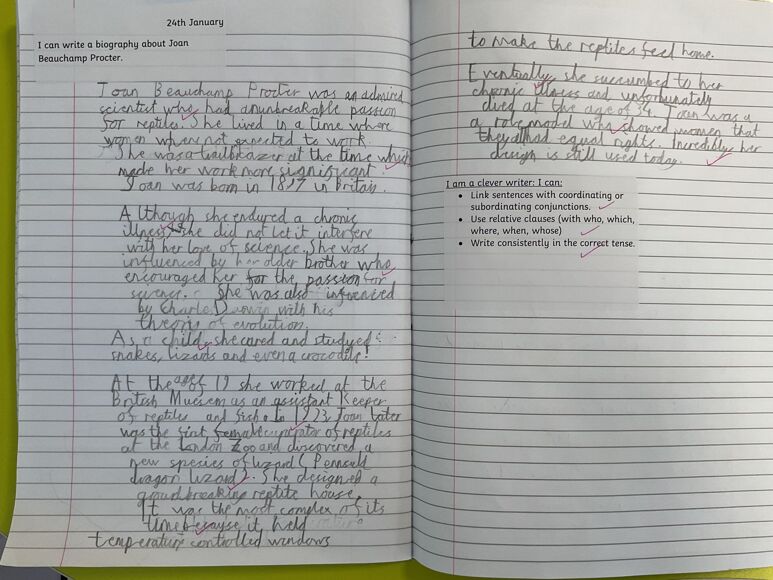 24th January
I can write a biography about Joan
Beauchamp Procter.
Joan Beauchamp Procter was an admired
scientist who had anunbreakable passion
for reptiles. She lived in a time where
women where not expected to work.
She was a trailblazer at the time which
made her work more significant.
Joan was born in 1897 in britain.
Although she endured a chronic
illness, she did not let it interfere
with her love of science. She was
influenced by her older brother who
encouraged her for the passion for
science. She was also influenced
by Charle Darwin with his
theoris of evolution.
As a child, she cared and studyed
snakes, lizards and even a crocodile!
At the age of 19 she worked at the
British Museem as an assistant Keeper
of reptiles and fish. In 1923 Joan later
was the first female curator of reptiles
at the London Zoo and discovered a
new spesies of lizard (
dragon lizard). She designed a
groundbreaking reptite house.
It was the most complex of its
time because it held
temperature controlled windows
to make the reptiles feel home.
Eventually, she succumbed to her
chronic illness and unfortunately
died at the age of 34. Joan was a
a role model who showed women that
they all had equal rights. Incredibly her
design is still used today.
I am a clever writer: I can:
• Link sentences with coordinating or
subordinating conjunctions.
• Use relative clauses (with who, which,
where, when, whose)
• Write consistently in the correct tense.